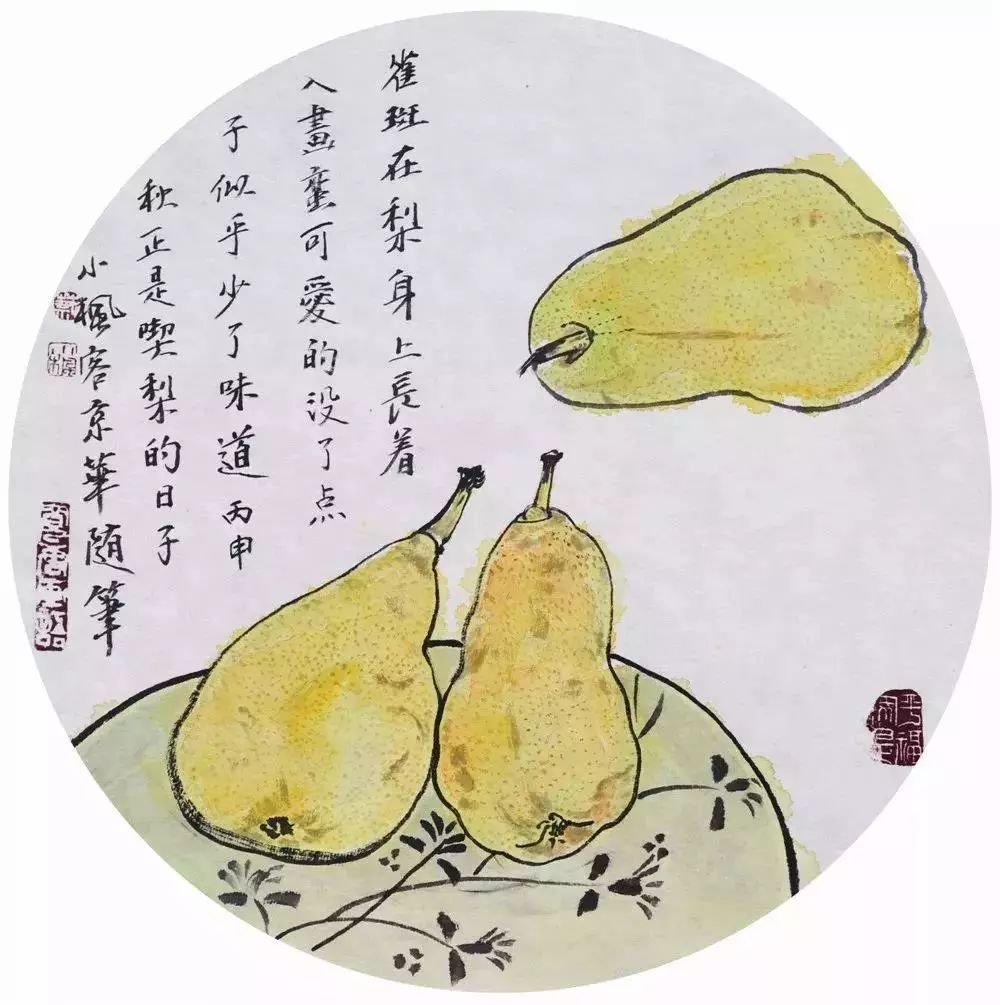 雀斑在梨身上長着
入畫蛮可愛的没了点
子似乎少了味道 丙申
秋正是喫梨的日子
小楓客京華随筆